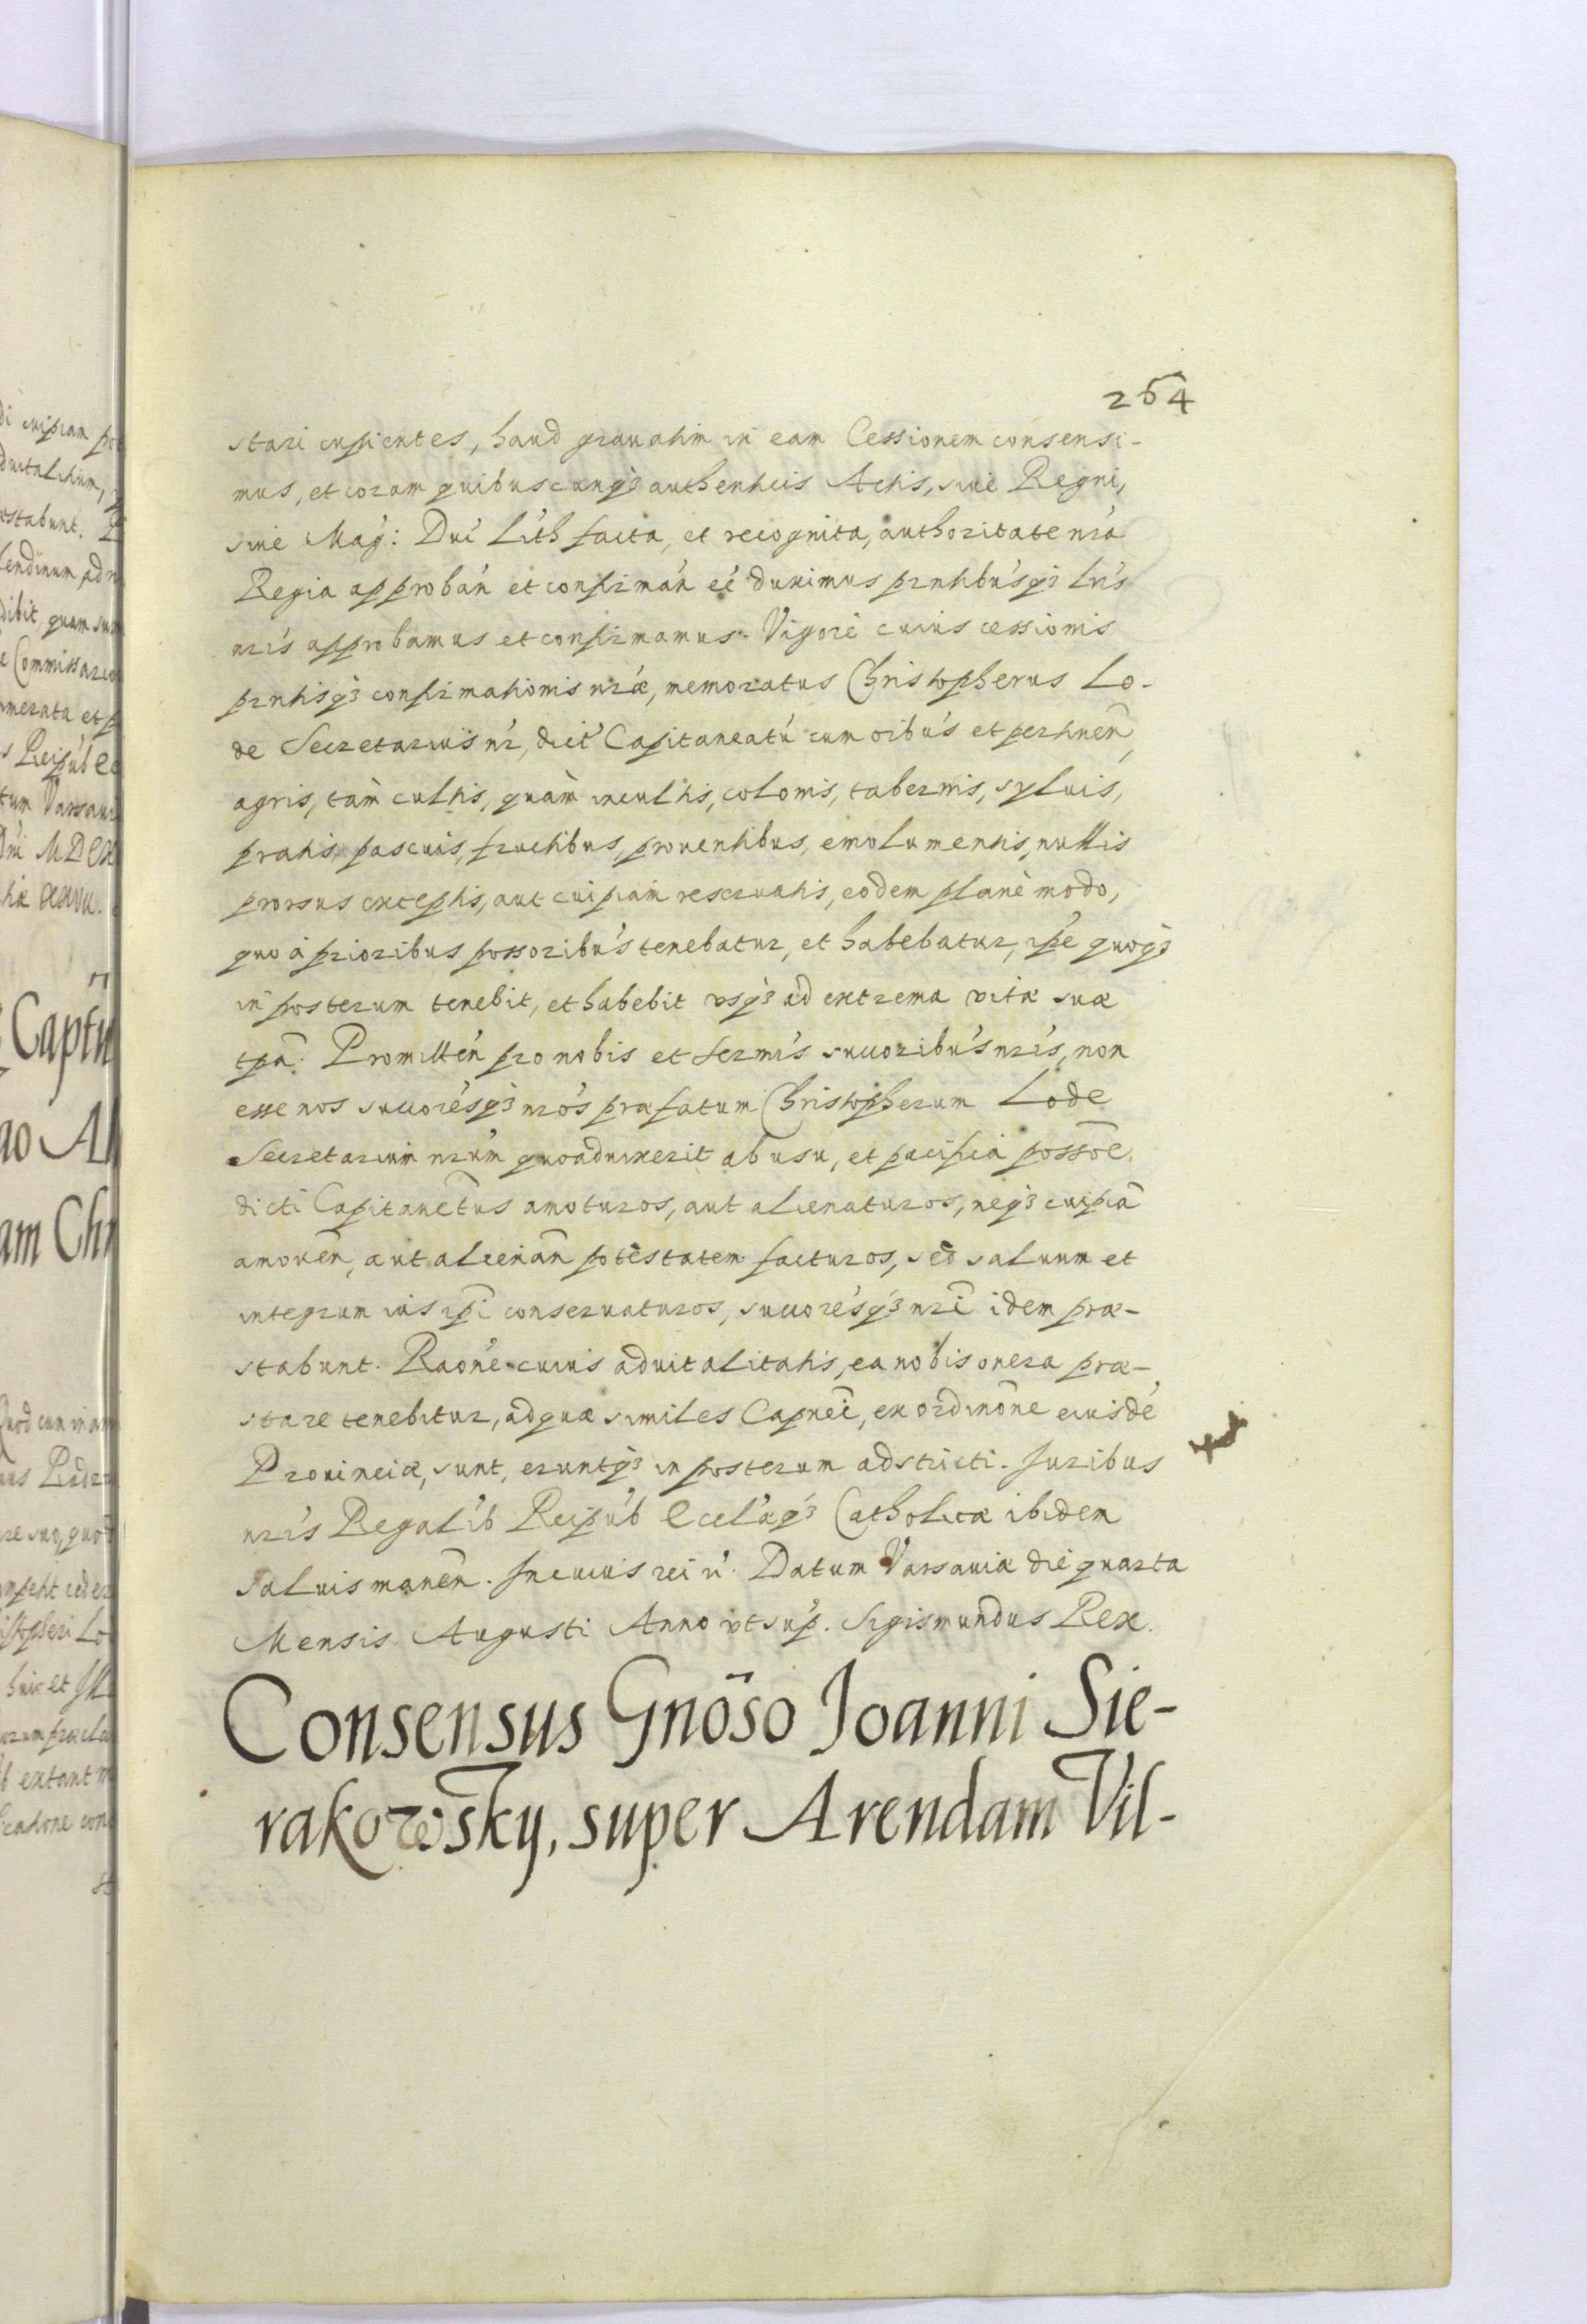 264
stari cupientes, haud grauatim in eam Cessionem consensi-
mus, et coram quibuscunq3 authenticis Actis, siue Regni,
siue Mag: Duć Lith facta, et recognita, authoritate nrá
Regia approbań et confirmań eé duximus prntibúsq3 lrís
nrís approbamus et confirmamus. Vigore cuius cessionis
prntisq3 confirmationis nrǽ, memoratus Christopherus Lo-
de Secretarius nŕ, dict Capitaneatú cum oibús et pertineñ,
agris, tàm cultis, quàm incultis, colonis, tabernis, syluis,
pratis, pascuis, fructibus, prouentibus, emolumentis, nullis
prorsus exceptis, aut cuipiam reseruatis, eodem planè modo,
quo à prioribus possoribús tenebatur, et habebatur, ipé quoq3
in posterum tenebit, et habebit vsq3 ad extrema vitæ suæ
tpã. Promitteń pro nobis et Sermís succoribús nrís, non
esse nos succorésq3 nrós præfatum Christopherum Lode
Secretarium nrúm quoaduixerit ab usu, et pacifica possõe
dicti Capitanetus amoturos, aut alienaturos, neq3 cuipiã
amoueñ, aut alienañ potestatem facturos, sed saluum et
integrum ius ipĩ conseruaturos, succorésq3 nrĩ idem præ-
stabunt. Raoné cuius aduitalitatis, ea nobis onera præ-
stare tenebitur, ad quæ similes Capneĩ, ex ordinõne eiusdé
Prouinciæ, sunt, eruntq3 in posterum adstricti. Iuribus
nrís Regalíb Reipúb Eccláq3 Catholicæ ibidem
saluis maneñ. In cuius rei ń. Datum Varsauiæ die quarta
Mensis Augusti Anno vt súp. Sigismundus Rex.
Consensus Gnõso Joanni Sie-
rakowsky, super Arendam Vil-